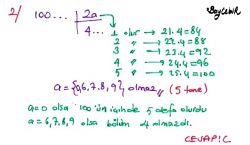 BoyCEBIR
2/ 100... | 2a
4...
1 olur → 21.4=84
2 " → 22.4=88
3 " → 23.4=92
4 " → 24.4=96
5 " → 25.4=100
a={0,6,7,8,9} olmaz (5 tane)
a=0 olsa 100'ün içinde 5 defa olurdu
a=6,7,8,9 olsa bölüm 4 olmazdı.
CEVAP: C